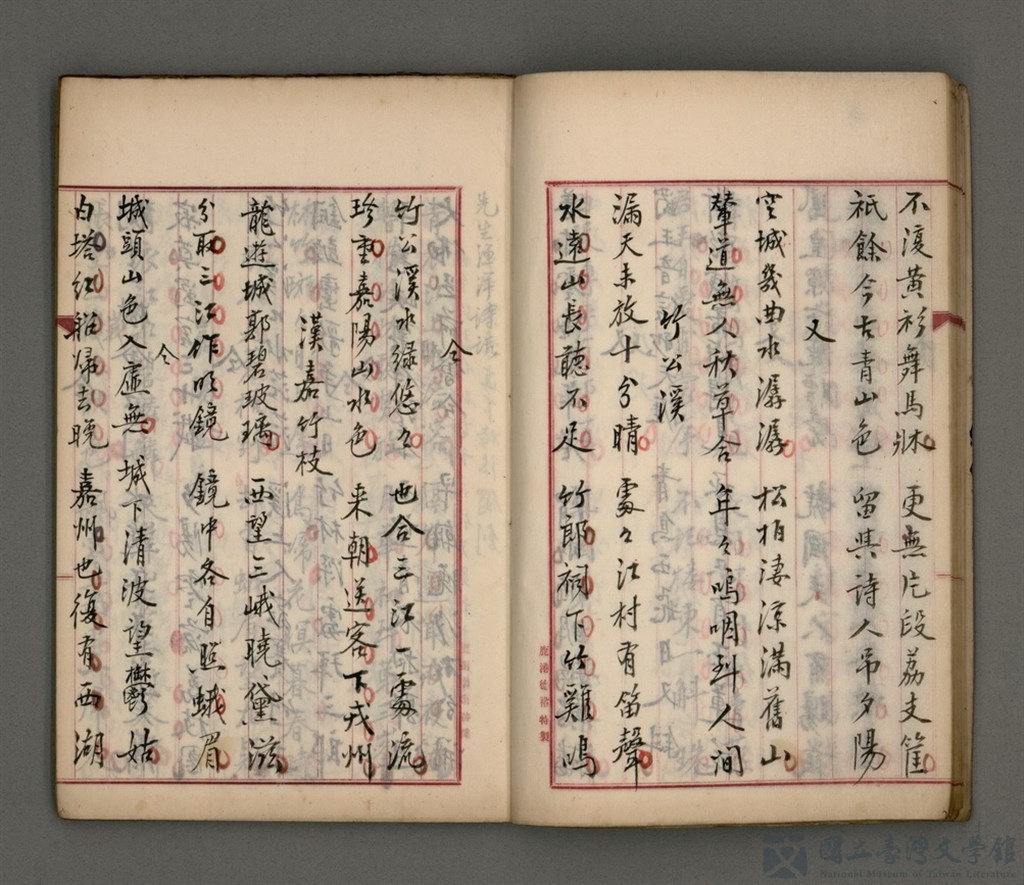 不復黃衫舞馬牀　更無片段荔支筐
祇餘今古青山色　留與詩人弔夕陽
又
空城幾曲水潺潺　松柏淒涼滿舊山
輦道無人秋草合　年々嗚咽到人間
竹公溪
漏天未放十分晴　處々江村有笛聲
水遠山長聽不足　竹郎祠下竹雞鳴
仝
竹公溪水綠悠々　也合三江一處流
珍重嘉陽山水色　來朝送客下戎州
漢嘉竹枝
龍遊城郭碧玻璃　西望三峨曉黛滋
分取三江作明鏡　鏡中各自照蛾眉
仝
城頭山色入虛無　城下清波望鬱姑
白塔紅船歸去晚　嘉州也復有西湖
鹿港德裕特製
國立臺灣文學館
National Museum of Taiwan Literature